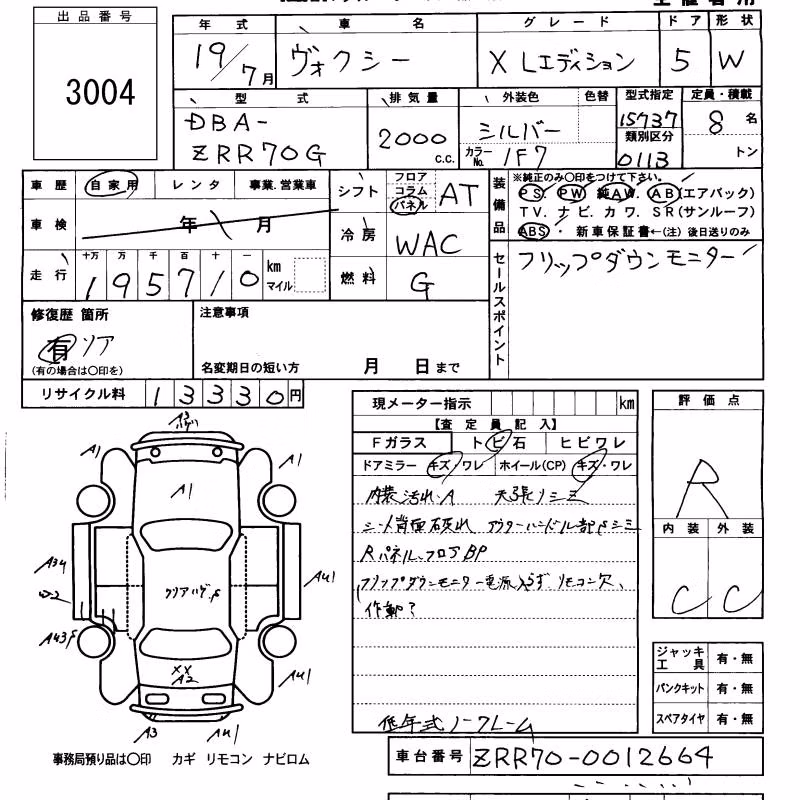 出品番号
3004
年式 車名 グレード ドア 形状
19/7月 ヴォクシー X Lエディション 5 W
型式 排気量 外装色 色替 型式指定 定員・積載
DBA-ZRR70G 2000 c.c. シルバー カラーNo. 1F7 15737 類別区分 0113 8名 トン
車歴 自家用 レンタ 事業.営業車
車検 年 月
走行 十万 万 千 百 十 一
195710 km マイル
シフト フロア コラム パネル AT
冷房 WAC
燃料 G
装備品
※純正のみ〇印をつけて下さい。
PS. PW 純AW. AB(エアバック)
TV. ナビ. カワ. SR(サンルーフ)
ABS ・ 新車保証書←(注) 後日送りのみ
セールスポイント
フリップダウンモニター
修復歴 箇所
有 リア
(有の場合は〇印を)
注意事項
名変期日の短い方 月 日まで
リサイクル料 13330円
現メーター指示 km
【査定員記入】
Fガラス トビ石 ヒビワレ
ドアミラー キズ・ワレ ホイール(CP) キズ・ワレ
内装汚れ.A 天張りシミ
シート背面破れ アウターハンドル部
Rパネル、フロアBP
フリップダウンモニター電源入らず、リモコン欠、
作動?
低年式ノークレーム
評価点
R
内装 外装
C C
ジャッキ工具 有・無
パンクキット 有・無
スペアタイヤ 有・無
A3
A1
A1
A1
クリアハゲ
AU1
AU1
XX
A2
A3
AU1
事務局預り品は〇印 カギ リモコン ナビロム
車台番号 ZRR70-0012664